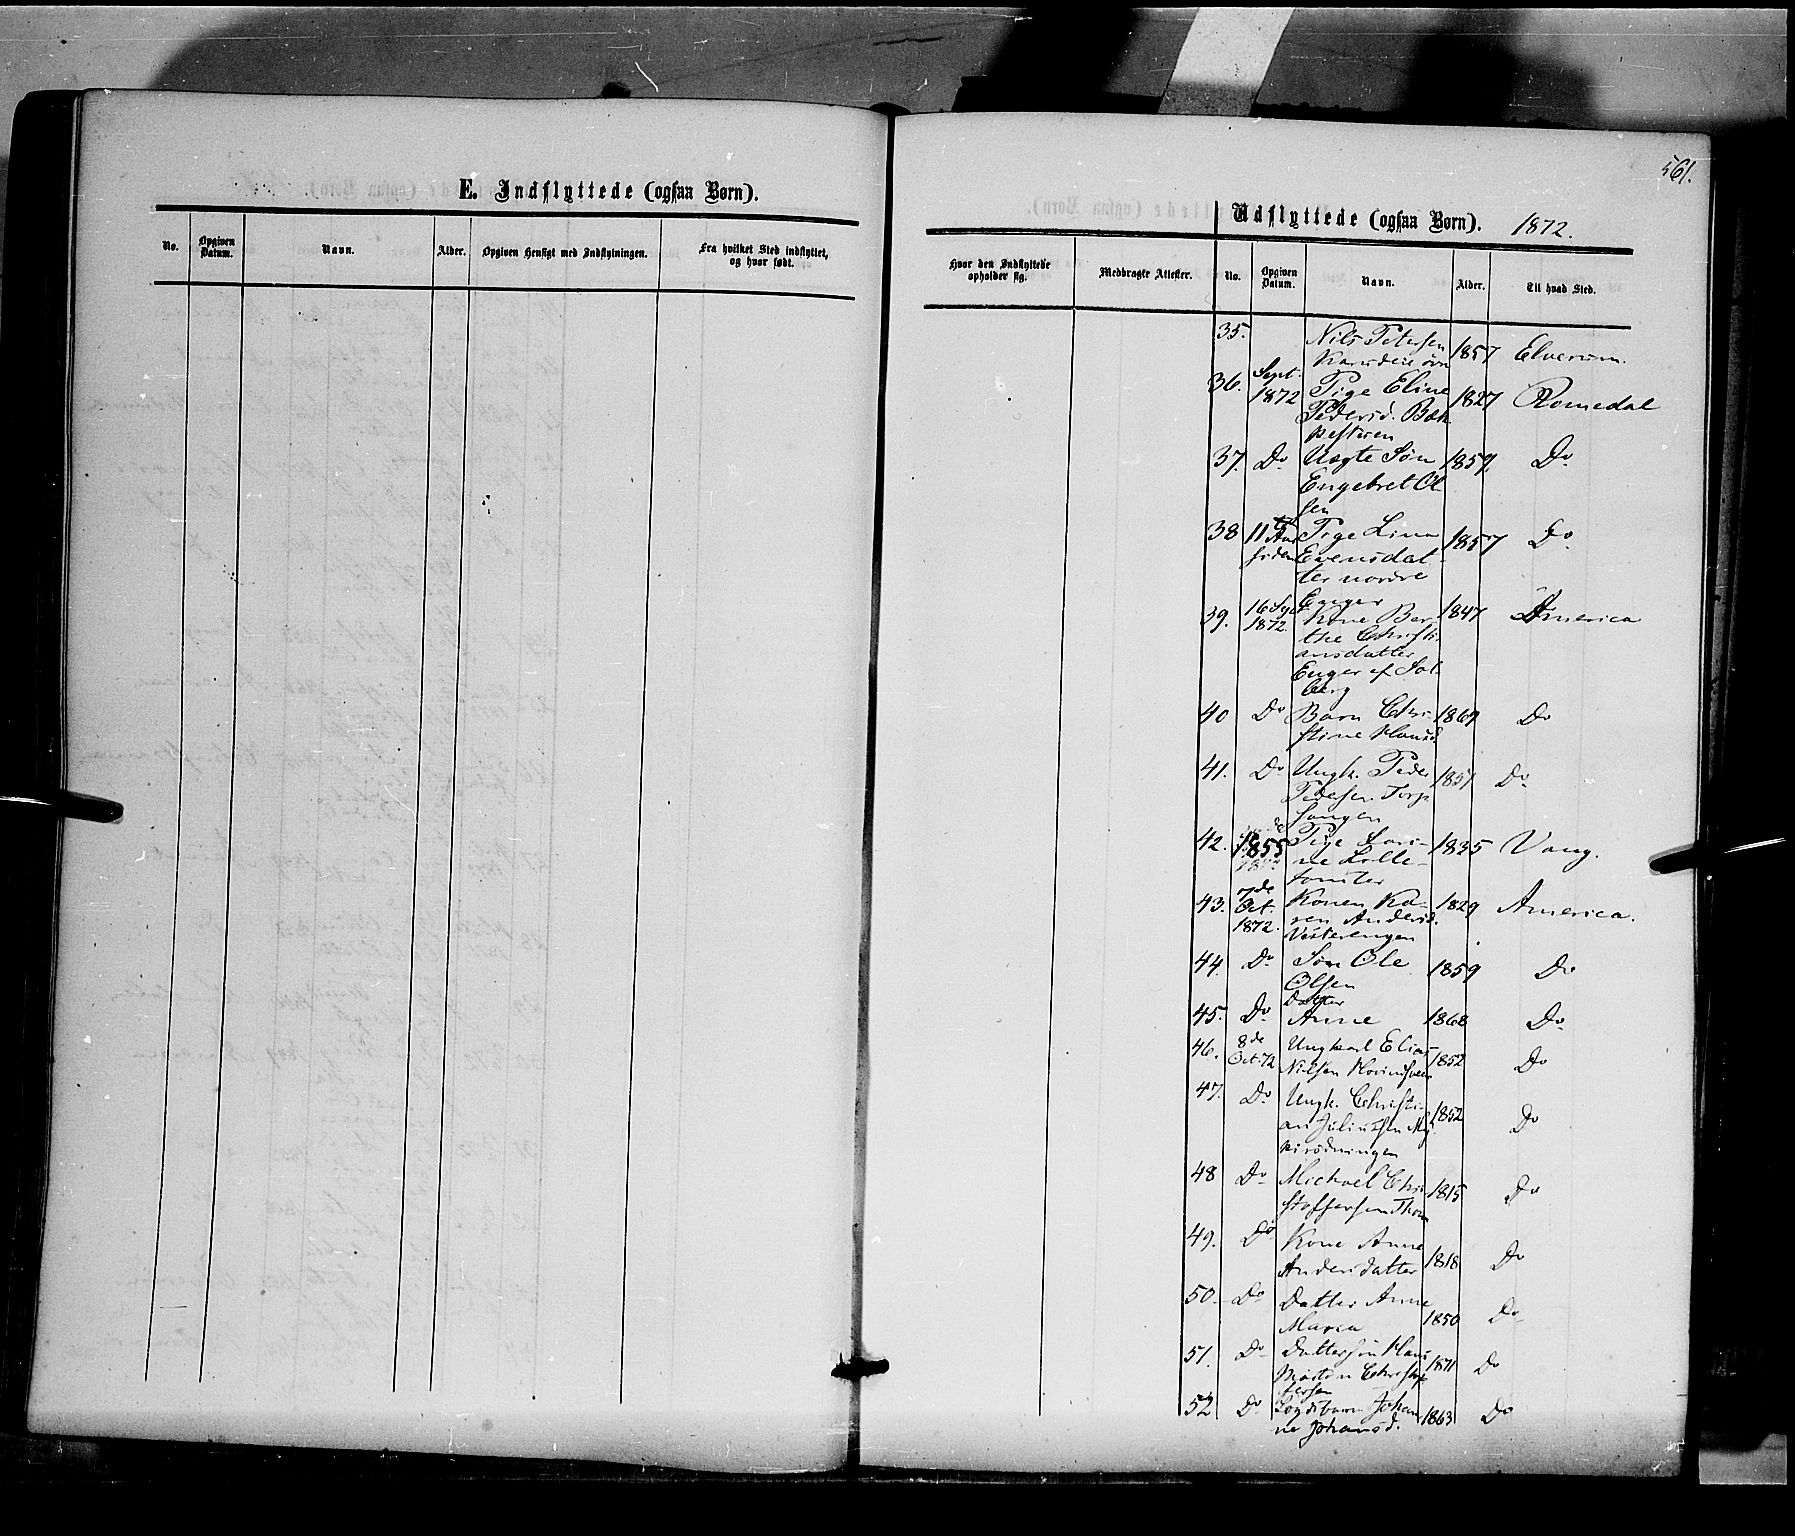 561.
E. Indflyttede (ogsaa Børn).
No. Opgiven Datum. Navn. Alder. Opgiven Hensigt med Indflytningen. Fra hvilket Sted indflyttet, og hvor født.
Udflyttede (ogsaa Børn). 1872.
Hvor den Indflyttede opholder sig. Medbragte Attester. No. Opgiven Datum. Navn. Alder. Til hvad Sted.
35. Nils Petersen 1857 Elverum.
36. Sept. 1872 Pige Eline 1827 Romedal
Pedersd. Bæk
kestuen
37. Do Uægte Søn 1859. Do
Engebret Ol
sen
38 11 Pige Lina 1857 Do
Evensdat-
ter nordre
Enger
39. 16 Sept 1872. Kone Ber- 1847 America
the Christi
ansdatter
Enger af Sol
berg
40 Do Barn Chri- 1869 Do
stine Hansd.
41. Do Ungk. Peder 1851 Do
Pedersen Torp
42. 1855 Pige 1835 Vang.
ne Lille-
43. 7de Oct. 1872. Konen Ka- 1829 America.
ren Andersd.
Vesterengen
44 Do Søn Ole 1859 Do
Olsen
45. Do Datter 1868 Do
Anne
46. 8de Oct. 72 Ungkarl Elias 1852 Do
Nilsen
47. Do Ungk. Christi- 1852 Do
an Juliussen
48 Do Michael Chri 1815 Do
stoffersen
49. Do Kone Anne 1818 Do
Andersdatter
50. Do Datter Anne 1850 Do
Maria
51. Do Dattersøn Hans 1871 Do
Martin Christof
fersen
52 Do Johan 1863 Do
ne Johansd.